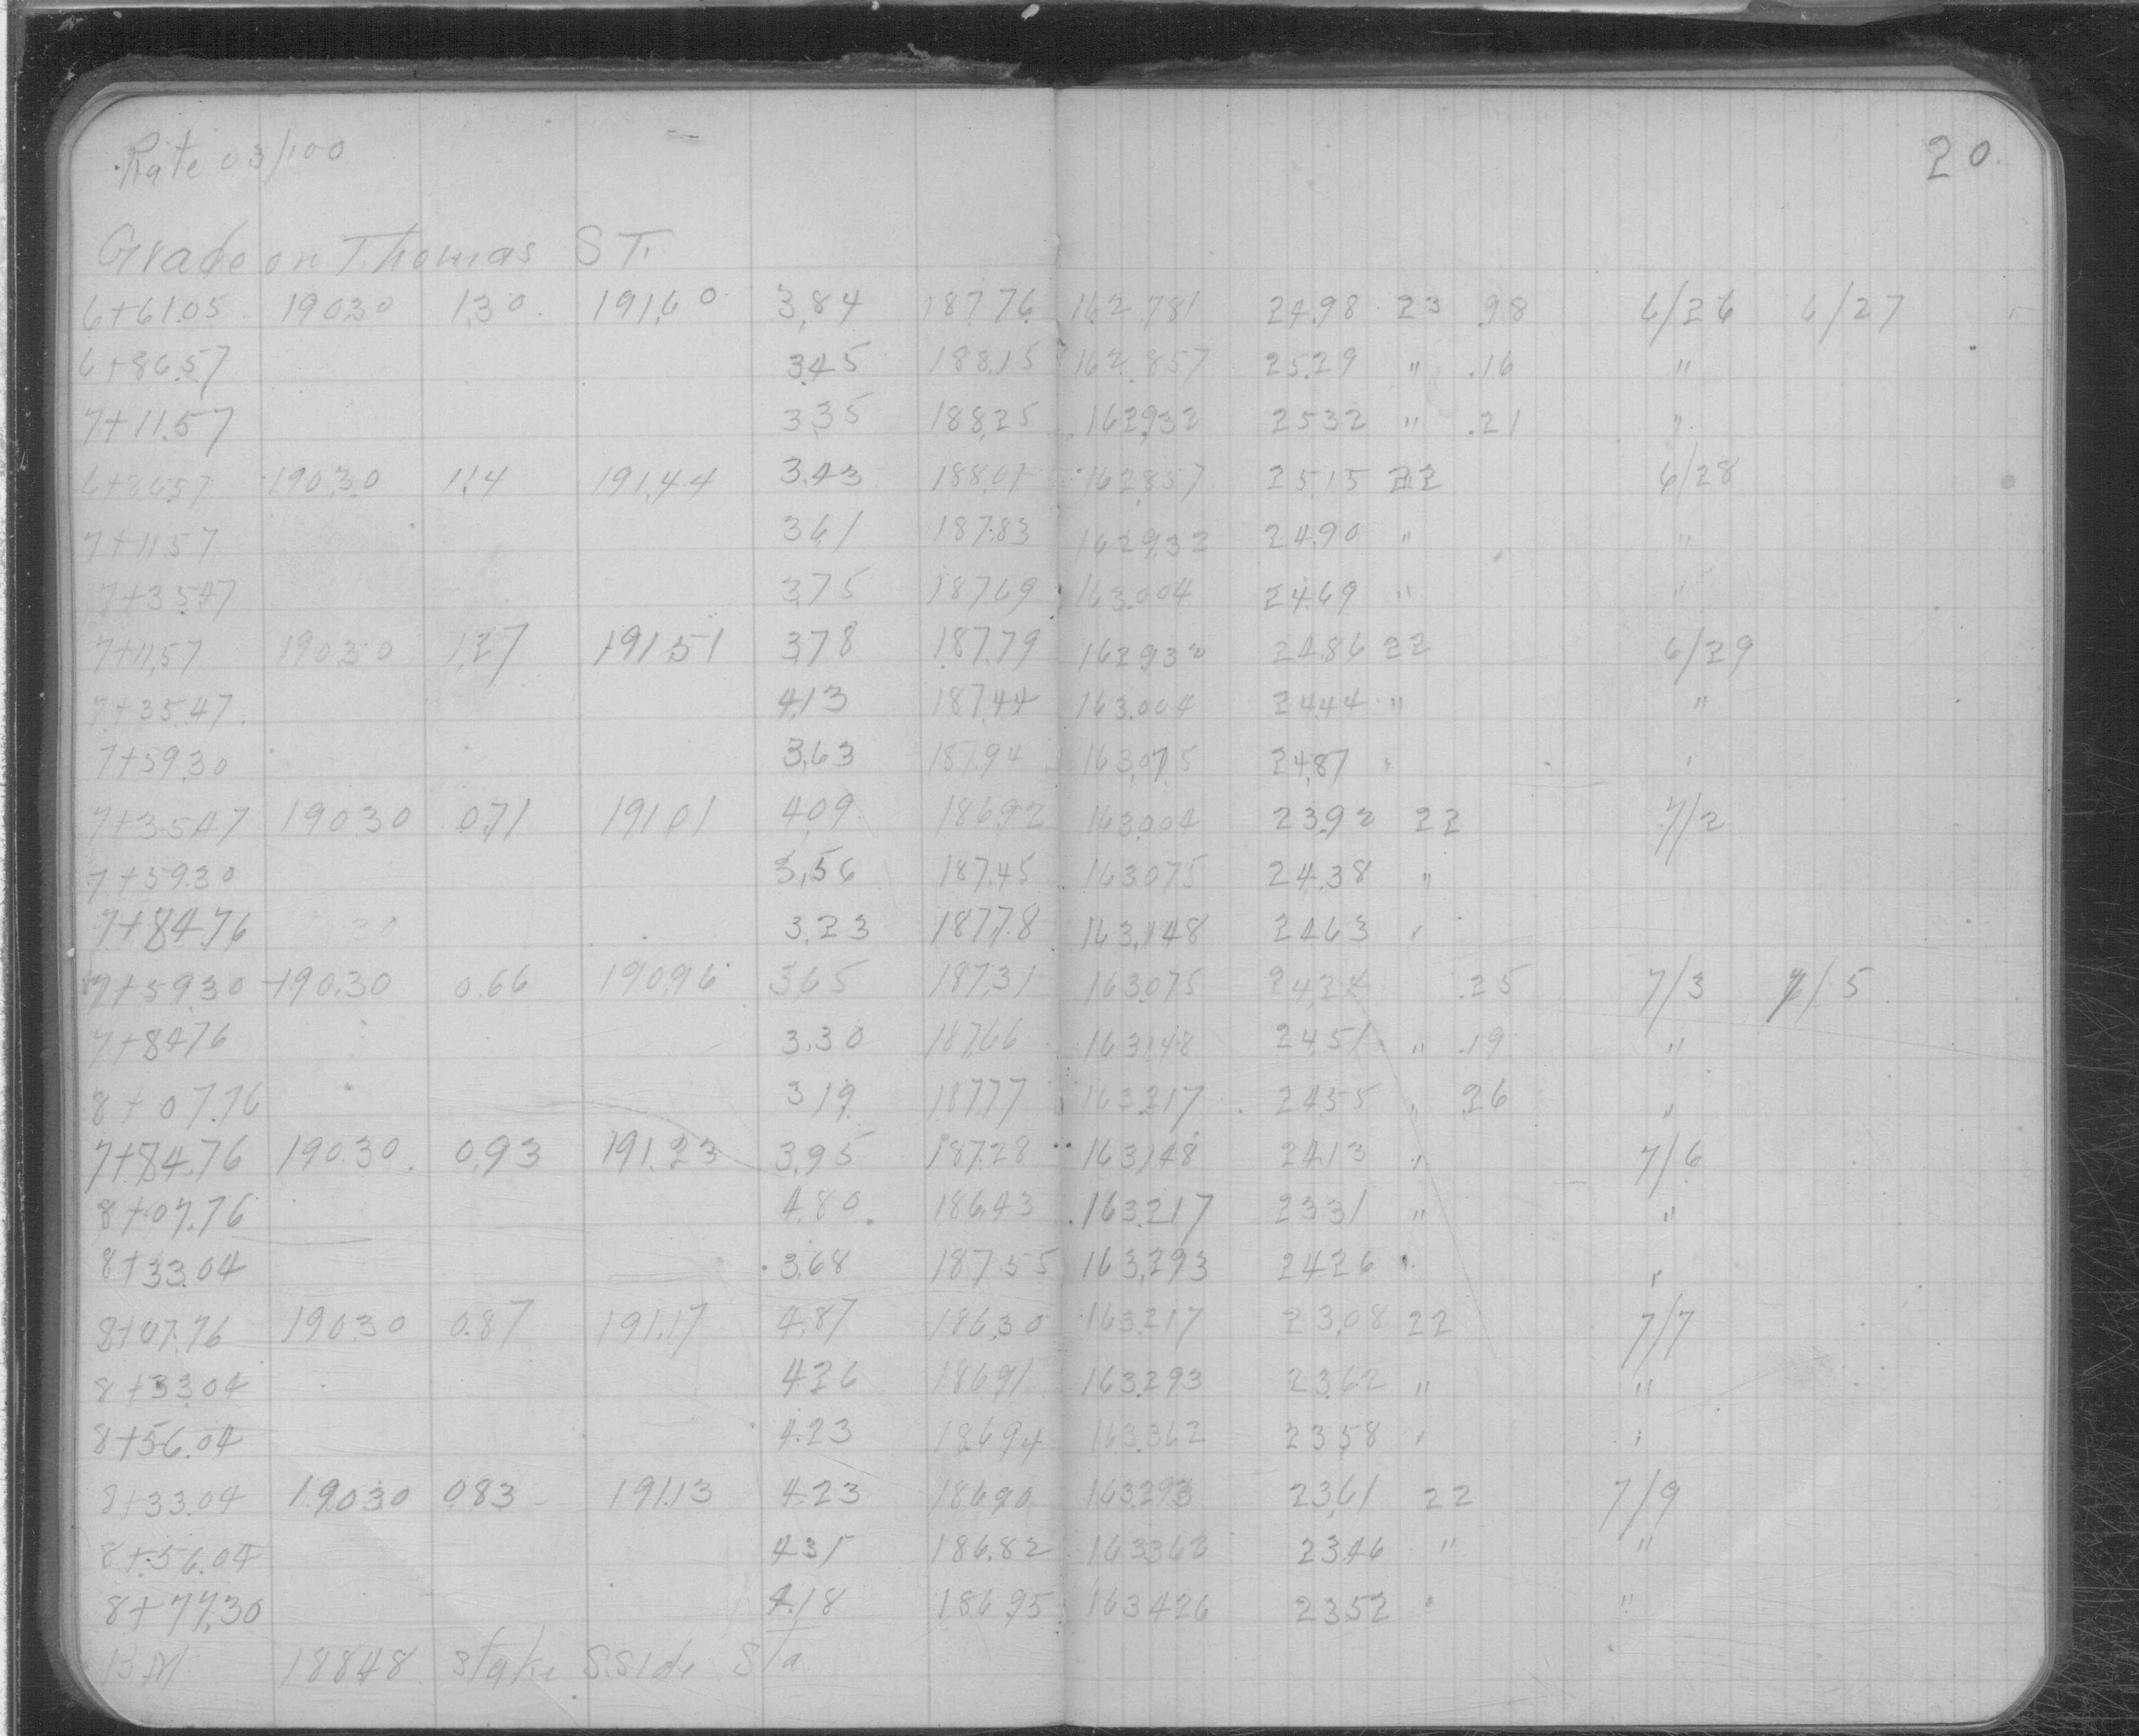 Rate 03/100
20
Grade on Thomas ST.
6+61.05 190.30 1.30 191.60 3.84 187.76 162.781 24.98 23 .98 6/26 6/27
6+86.57 3.45 188.15 162.857 25.29 " .16 "
7+11.57 3.35 188.25 162.932 25.32 " .21 "
6+86.57 190.30 1.14 191.44 3.43 188.01 162.857 25.15 22 6/28
7+11.57 3.61 187.83 162.932 24.90 " "
7+35.47 3.75 187.69 163.004 24.69 " "
7+11.57 190.30 1.27 191.51 3.78 187.79 162.932 24.86 22 6/29
7+35.47 4.13 187.44 163.004 24.44 " "
7+59.30 3.63 187.94 163.075 24.87 " "
7+35.47 190.30 0.71 191.01 4.09 186.92 163.004 23.92 22 7/2
7+59.30 3.56 187.45 163.075 24.38 "
7+84.76 3.23 187.78 163.148 24.63 "
7+59.30 190.30 0.66 190.96 3.65 187.31 163.075 24.24 .25 7/3 7/5
7+84.76 3.30 187.66 163.148 24.51 " .19 "
8+07.76 3.19 187.77 163.217 24.55 " 26 "
7+84.76 190.30 0.93 191.23 3.95 187.28 163.148 24.13 " 7/6
8+07.76 4.80 186.43 163.217 23.31 " "
8+33.04 3.68 187.55 163.293 24.26 " "
8+07.76 190.30 0.87 191.17 4.87 186.30 163.217 23.08 22 7/7
8+33.04 4.26 186.91 163.293 23.62 " "
8+56.04 4.23 186.94 163.362 23.58 " "
8+33.04 190.30 0.83 191.13 4.23 186.90 163.293 23.61 22 7/9
8+56.04 4.31 186.82 163.362 23.46 " "
8+77.30 4.18 186.95 163.426 23.52 " "
BM 188.48 stake S.Side Sta